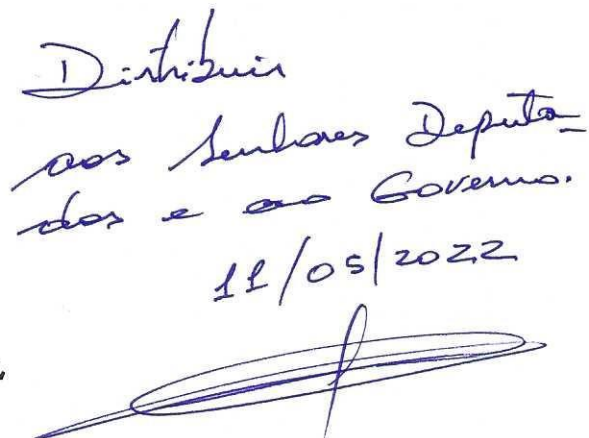 Distribuir
aos Senhores Deputa-
dos e ao Governo.
11/05/2022